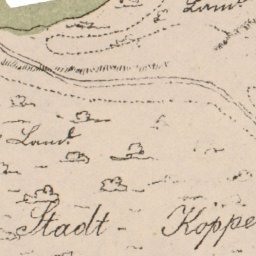 Land.
Land.
Stadt - Koppe